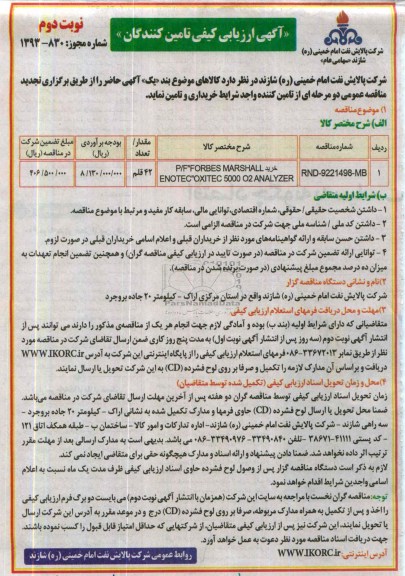 نوبت دوم
شماره مجوز: ۸۳۰-۱۳۹۳
«آگهی ارزیابی کیفی تامین کنندگان»
شرکت پالایش نفت امام خمینی (ره)
شازند «سهامی عام»
شرکت پالایش نفت امام خمینی (ره) شازند در نظر دارد کالاهای موضوع بند «یک» آگهی حاضر را از طریق برگزاری تجدید
مناقصه عمومی دو مرحله ای از تامین کننده واجد شرایط خریداری و تامین نماید.
۱) موضوع مناقصه
الف) شرح مختصر کالا
ردیف شماره مناقصه شرح مختصر کالا مقدار/ تعداد بودجه برآوردی (ریال) مبلغ تضمین شرکت در مناقصه (ریال)
۱ RND-9221498-MB خرید P/F"FORBES MARSHALL ENOTEC"OXITEC 5000 O2 ANALYZER ۴۲ قلم ۸/۱۳۰/۰۰۰/۰۰۰ ۴۰۶/۵۰۰/۰۰۰
ب) شرایط اولیه متقاضی
۱ - داشتن شخصیت حقیقی / حقوقی، شماره اقتصادی، توانایی مالی، سابقه کار مفید و مرتبط با موضوع مناقصه.
۲ - داشتن کد ملی / شناسه ملی جهت شرکت در مناقصه الزامی است.
۳ - داشتن حسن سابقه و ارائه گواهینامه‌های مورد نظر از خریداران قبلی و اعلام اسامی خریداران قبلی در صورت لزوم.
۴ - توانایی ارائه تضمین شرکت در مناقصه (در صورت تایید در ارزیابی کیفی مناقصه گران) و همچنین تضمین انجام تعهدات به
میزان ده درصد مجموع مبلغ پیشنهادی (در صورت برنده شدن در مناقصه).
۲) نام و نشانی دستگاه مناقصه گزار
شرکت پالایش نفت امام خمینی (ره) شازند واقع در استان مرکزی اراک - کیلومتر ۲۰ جاده بروجرد
۳) مهلت و محل دریافت فرمهای استعلام ارزیابی کیفی
متقاضیانی که دارای شرایط اولیه (بند ب) بوده و آمادگی لازم جهت انجام هر یک از مناقصه‌ی مذکور را دارند می توانند پس از
انتشار آگهی نوبت دوم (سه روز پس از انتشار آگهی نوبت اول) به مدت پنج روز کاری ضمن ارسال تقاضای شرکت در مناقصه مورد
نظر از طریق نمابر ۳۳۶۷۲۰۱۳-۰۸۶ فرمهای استعلام ارزیابی کیفی را از پایگاه اینترنتی این شرکت به آدرس WWW.IKORC.IR
دریافت و براساس آن مدارک لازمه را تکمیل و صرفا بر روی لوح فشرده (CD) به این شرکت تحویل یا ارسال نمایند.
۴) محل و زمان تحویل اسناد ارزیابی کیفی (تکمیل شده توسط متقاضیان)
زمان تحویل اسناد ارزیابی کیفی توسط مناقصه گران دو هفته پس از آخرین مهلت ارسال تقاضای شرکت در مناقصه می‌باشد.
ضمنا محل تحویل یا ارسال لوح فشرده (CD) حاوی فرمها و مدارک تکمیل شده به نشانی اراک - کیلومتر ۲۰ جاده بروجرد -
سه راهی شازند - شرکت پالایش نفت امام خمینی (ره) شازند - اداره تدارکات و امور کالا - ساختمان ب - طبقه همکف اتاق ۱۲۱
- کد پستی ۴۱۱۱۱-۳۸۶۷۱ - تلفن ۳۳۴۹۰۸۴۰-۳۳۴۹۰۹۷۶-۰۸۶ می باشد. بدیهی است به مدارک ارسالی بعد از مهلت مقرر
ترتیب اثر داده نخواهد شد. ضمنا دادن پیشنهاد و ارائه اسناد و مدارک هیچگونه حقی برای متقاضی ایجاد نمی کند.
لازم به ذکر است دستگاه مناقصه گزار پس از وصول لوح فشرده حاوی اسناد ارزیابی کیفی ظرف مدت یک ماه نسبت به اعلام
اسامی واجدین شرایط اقدام خواهد نمود.
توجه: مناقصه گران نخست با مراجعه به سایت این شرکت (همزمان با انتشار آگهی نوبت دوم) می بایست دو برگ فرم ارزیابی کیفی
را اخذ و پس از تکمیل به همراه مدارک مربوطه، صرفا بر روی لوح فشرده (CD) درج و در موعد مقرر به آدرس این شرکت ارسال
یا تحویل نمایند، این شرکت نیز پس از ارزیابی کیفی متقاضیان، از شرکتهایی که حداقل امتیاز قابل قبول را کسب نموده باشند،
جهت دریافت اسناد مناقصه مورد نظر دعوت به عمل خواهد آورد.
آدرس اینترنتی: WWW.IKORC.IR
روابط عمومی شرکت پالایش نفت امام خمینی (ره) شازند